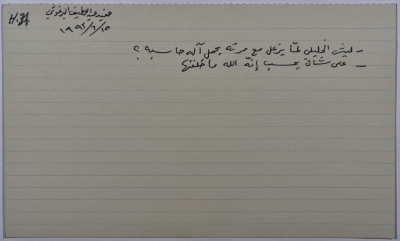 H.A
عبد اللطيف البرغوثي
١٩٩٢/٦/١٥
– ليش الخليلي لمّا يزعل مع مرته يحمل آلة حاسبة ؟
– على شان يحسب إنّه الله ما خلقها